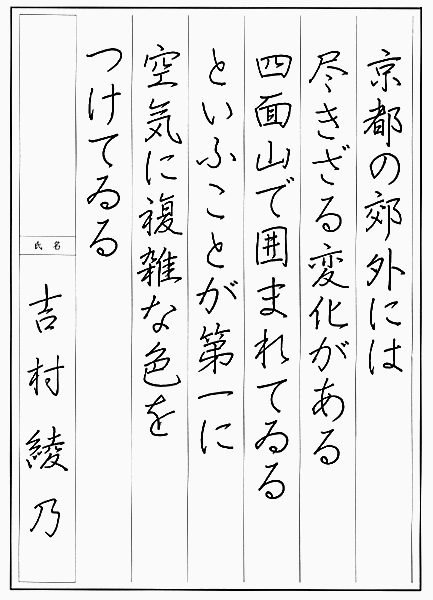 京都の郊外には
尽きざる変化がある
四面山で囲まれてゐる
といふことが第一に
空気に複雑な色を
つけてゐる
氏名
吉村綾乃